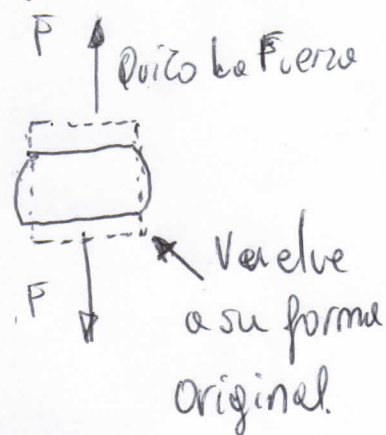 F
Quito la Fuerza
F
Vuelve
a su forma
original.